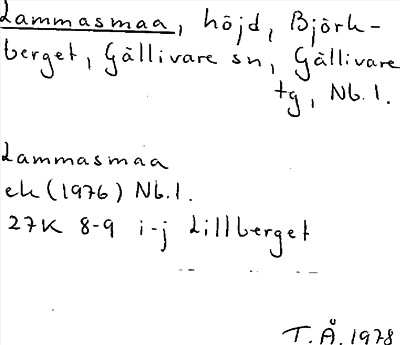 Lammasmaa, höjd, Björk-
berget, Gällivare sn, Gällivare
tg, Nb.l.
Lammasmaa
ek (1976) Nb.l.
27K 8-9 i-j Lillberget
T.Å. 1978